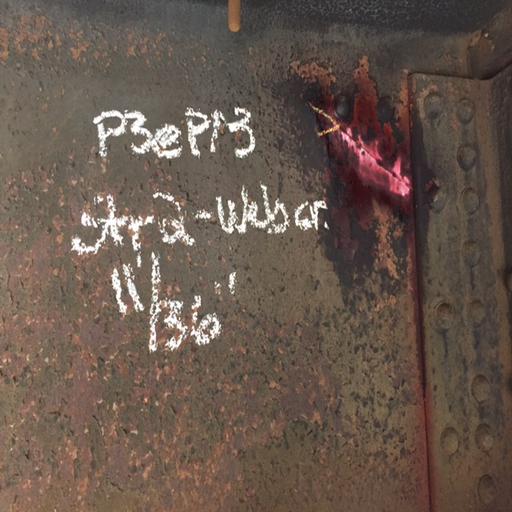 P3@P13
Str2-Web cr.
11/36"